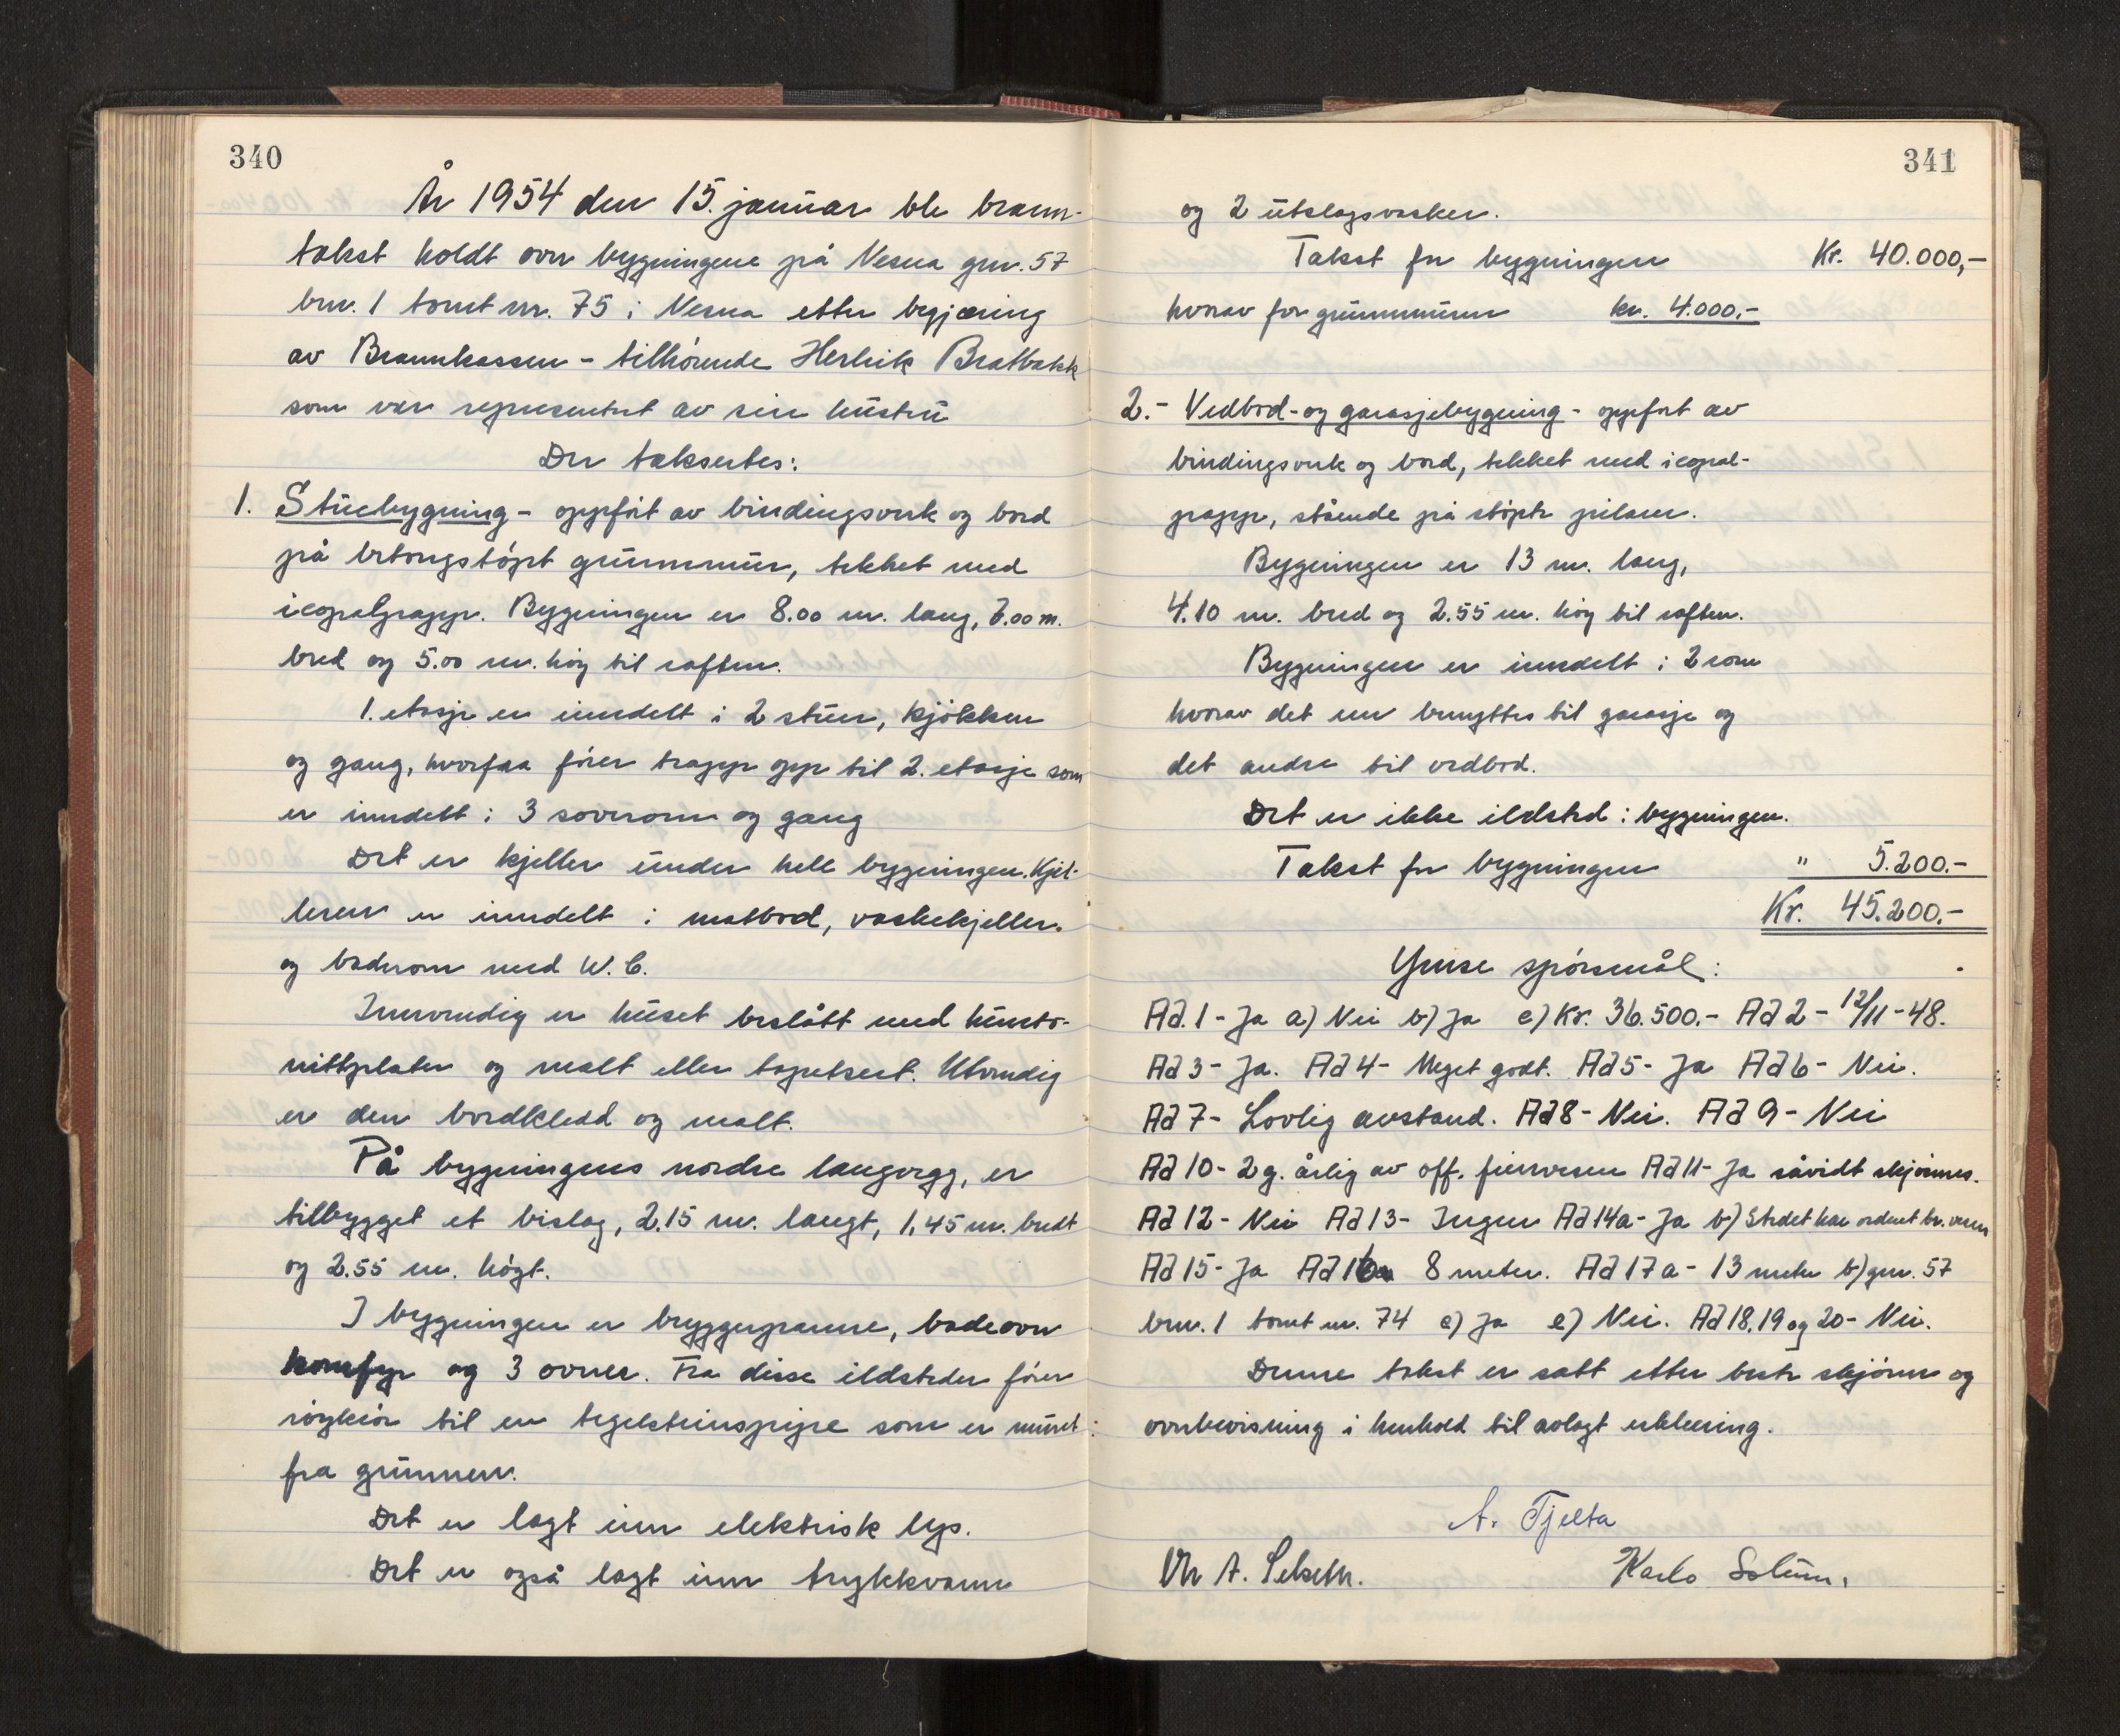 340
År 1954 den 15. januar ble brann-
takst holdt over bygningene på Nesna gnr. 57
bnr. 1 tomt nr. 75 i Nesna etter begjæring
av Brannkassen - tilhörende Herleik Bratbakk
som var representert av sin hustru
Der taksertes:
1. Stuebygning - oppfört av bindingsverk og bord
på betongstöpt grunnmur, tekket med
icopalpapp. Bygningen er 8.00 m. lang, 7.00 m.
bred og 5.00 m. höy til raften.
1. etasje er inndelt i 2 stuer, kjökken
og gang, hvorfra förer trapp opp til 2. etasje som
er inndelt i 3 soverom og gang
Det er kjeller under hele bygningen. Kjel-
leren er inndelt i matbod, vaskekjeller.
og baderom med W.C.
Innvendig er huset beslått med hunto-
nittplater og malt eller tapetsert. Utvendig
er den bordkledd og malt.
På bygningens nordre langvegg, er
tilbygget et bislag, 2.15 m. langt, 1.45 m. bredt
og 2.55 m. högt.
I bygningen er bryggerpanne, badeovn
komfyr og 3 ovner. Fra disse ildsteder förer
röykrör til en teglsteinspipe som er muret
fra grunnen.
Det er lagt inn elektrisk lys.
Det er også lagt inn trykkvann
341
og 2 utslagsvasker.
Takst for bygningen Kr. 40.000,-
hvorav for grunnmuren kr. 4.000.-
2.- Vedbod- og garasjebygning - oppfört av
bindingsverk og bord, tekket med icopal-
papp, stående på stöpte pilarer.
Bygningen er 13 m. lang,
4.10 m. bred og 2.55 m. höy til raften.
Bygningen er inndelt i 2 rom
hvorav det ene benyttes til garasje og
det andre til vedbod.
Det er ikke ildsted i bygningen.
Takst for bygningen " 5.200.-
Kr. 45.200.-
Ymse spörsmål:
Ad. 1 - Ja a) Nei b) Ja c) Kr. 36.500.- Ad 2 - 12/11-48.
Ad 3 - Ja. Ad 4 - Meget godt. Ad 5 - Ja Ad 6 - Nei.
Ad 7 - Lovlig avstand. Ad 8 - Nei. Ad 9 - Nei
Ad 10 - 2 g. årlig av off. feiervesen Ad 11 - Ja såvidt skjönnes.
Ad 12 - Nei Ad 13 - Ingen Ad 14a - Ja b) Stedet har ordnet br. vesen
Ad 15 - Ja Ad 16a 8 meter. Ad 17 a - 13 meter b) gnr. 57
bnr. 1 tomt nr. 74 c) Ja e) Nei. Ad 18, 19 og 20 - Nei.
Denne takst er satt etter beste skjönn og
overbevisning i henhold til avlagt erklæring.
A. Tjelta
A. Selseth. Karlo Solum.